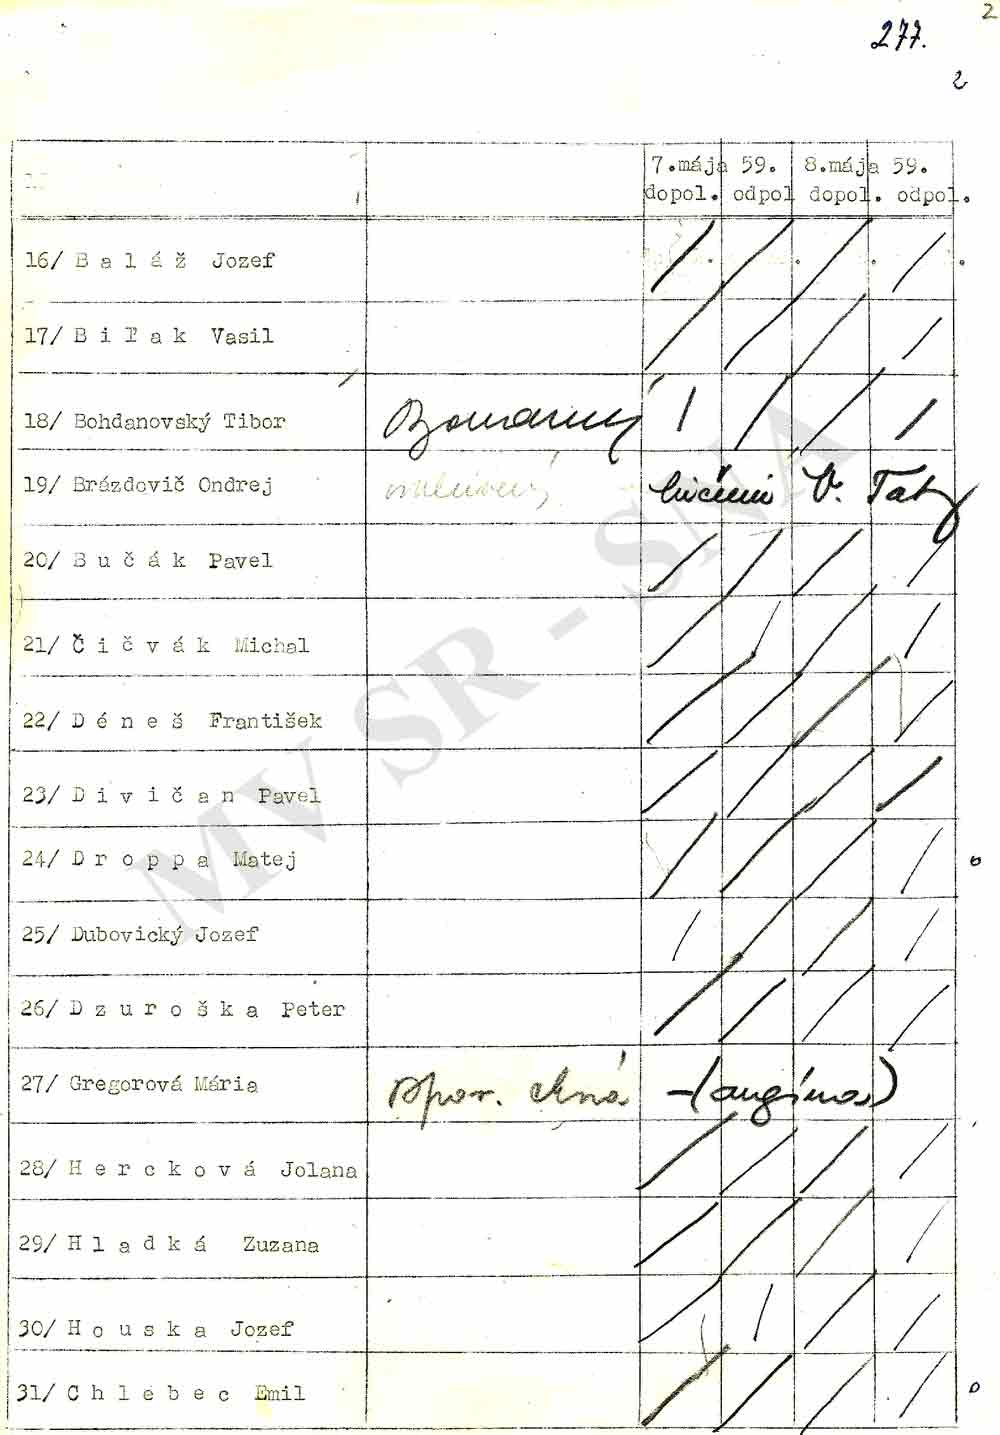 2
277.
2
7.mája 59. 8.mája 59.
dopol. odpol dopol. odpol.
16/ B a l á ž Jozef
17/ B i ľ a k Vasil
18/ Bohdanovský Tibor
19/ Brázdovič Ondrej V. Tatry
20/ B u č á k Pavel
21/ Č i č v á k Michal
22/ D é n e š František
23/ D i v i č a n Pavel
24/ D r o p p a Matej
25/ Dubovický Jozef
26/ D z u r o š k a Peter
27/ Gregorová Mária -(angína)
28/ H e r c k o v á Jolana
29/ H l a d k á Zuzana
30/ H o u s k a Jozef
31/ C h l e b e c Emil
MV SR - SNA